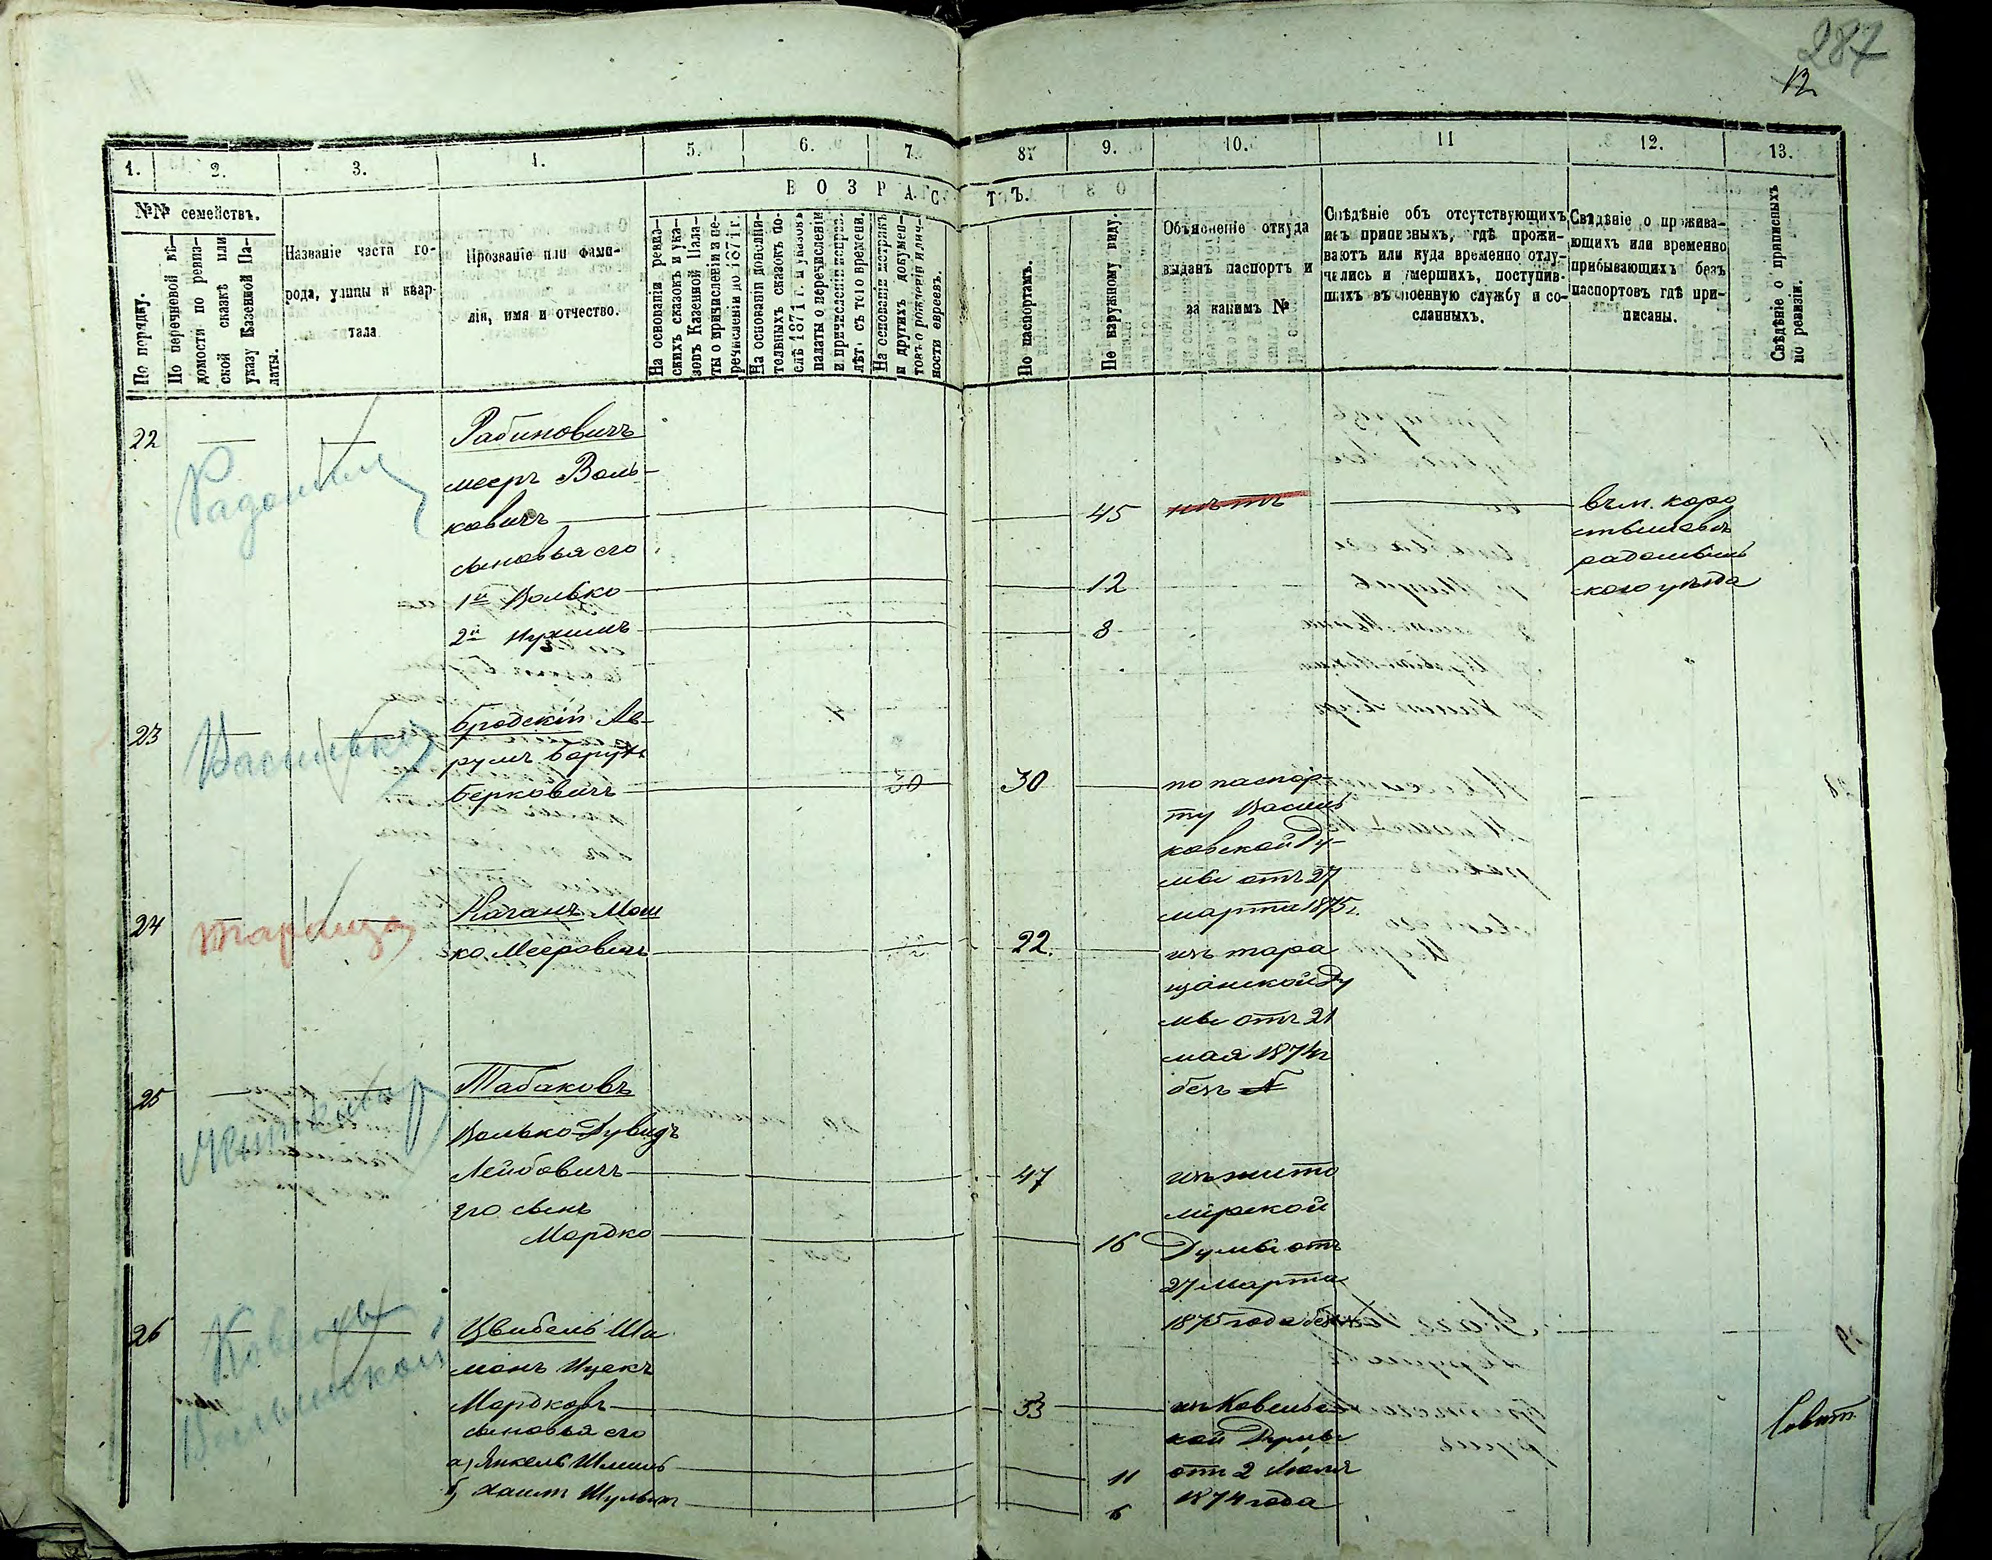 287
12
1. 2. 3. 4. 5. 6. 7. 8. 9. 10. 11 12. 13.
В О З Р А С Т Ъ.
№№ семействъ.
По порядку.
По перечневой вѣ-
домости по ревиз-
ской сказкѣ или
указу Казенной Па-
латы.
Названіе части го-
рода, улицы и квар-
тала
Прозваніе или фами-
лія, имя и отчество.
На основаніи ревиз-
скихъ сказокъ и ука-
зовъ Казенной Пала-
ты о причисленіи и пе-
речисленіи по 1871 г.
На основаніи дополни-
тельныхъ сказокъ по-
слѣ 1871 г. и указовъ
палаты о перечисленіи
и причисленіи
лѣтъ съ того времени.
На основаніи метрикъ
и другихъ докумен-
товъ о рожденіи и лич-
ности евреевъ.
По паспортамъ.
По наружному виду.
Объясненіе откуда
выданъ паспортъ и
за какимъ №
Свѣдѣніе объ отсутствующихъ
изъ приписныхъ, гдѣ прожи-
ваютъ или куда временно отлу-
чились и умершихъ, поступив-
шихъ въ военную службу и со-
сланныхъ.
Свѣдѣніе о прожива-
ющихъ или временно
прибывающихъ безъ
паспортовъ гдѣ при-
писаны.
Свѣдѣніе о приписныхъ
по ревизіи.
22 Рабиновичъ
Радомыль
Мееръ Воль-
ковичъ 45 нѣтъ въ м. Коро
стышевъ
радомысль
кого уѣзда
сыновья его
1й Волько 12
2й Нухимъ 8
23 Бродскій Ав-
Васильковъ
румъ Борухъ
Берковичъ 30 30 по паспор-
ту Василь
ковской Ду-
мы отъ 27
марта 1875 г.
24 Каганъ Мош
Тараща
ко Мееровичъ 22 22. изъ тара
щанской Ду
мы отъ 21
мая 1874 г
безъ №
25 Табаковъ
Волько-Дувидъ
Лейбовичъ 47 изъ жито
мірской
его сынъ
Мордко 16 Думы отъ
27 марта
1875 года без №
26 Цвибель Ши
Ковель
Волынской
монъ Ицекъ
Мордковъ 53 из Ковельс
кой Думы
сыновья его
а) Янкель Шмиль 11 отъ 2 Іюля
б) Хаимъ Шульим 6 1874 года